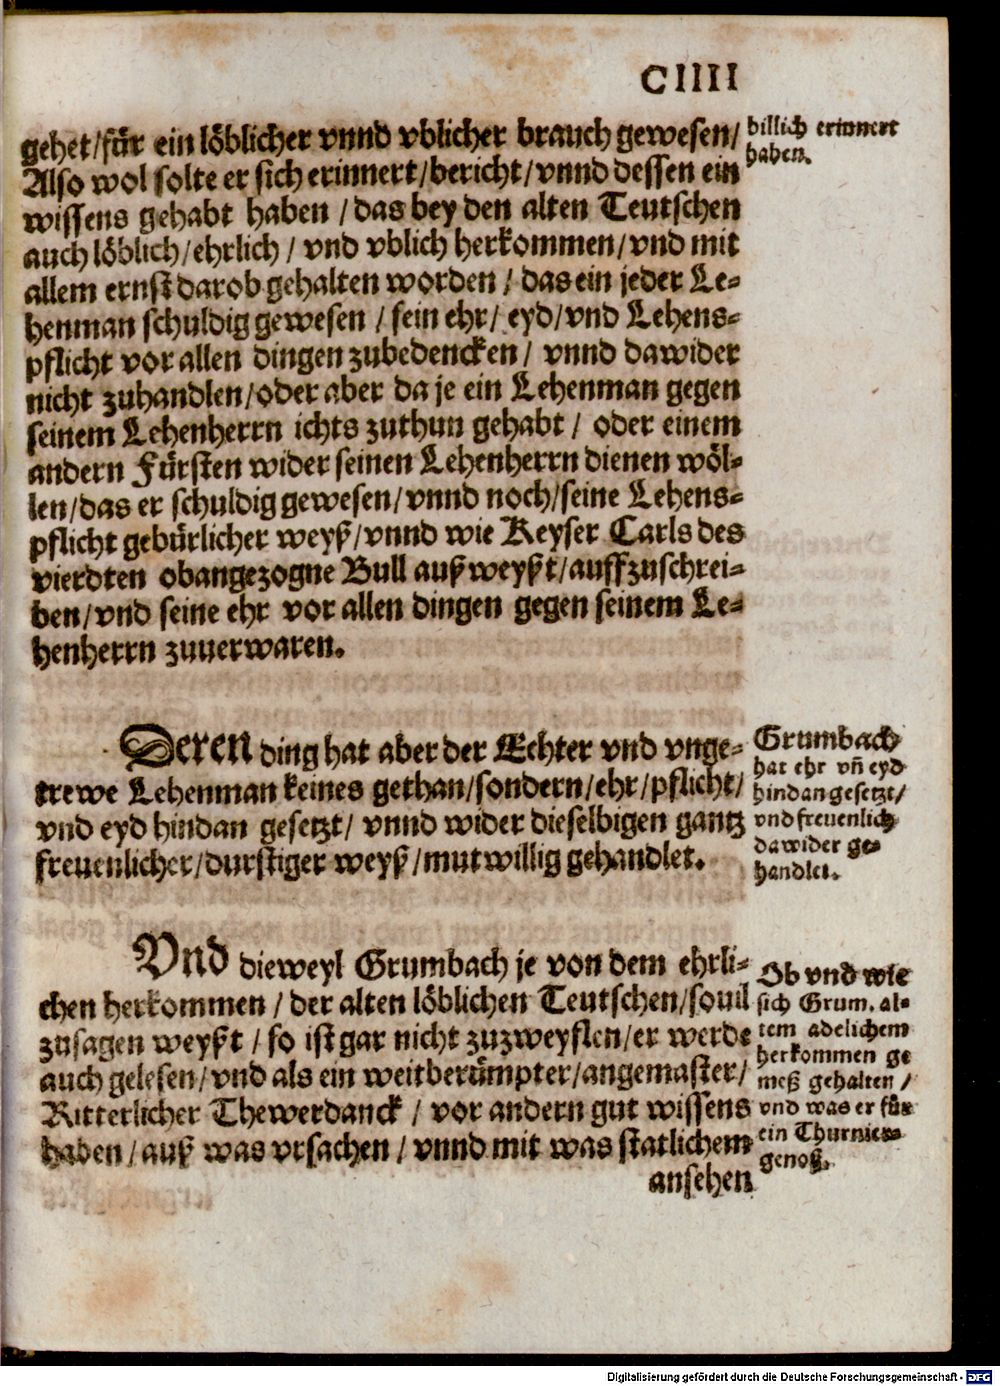 CIIII
gehet/für ein löblicher vnnd vblicher brauch gewesen/
Also wol solte er sich erinnert/bericht/vnnd dessen ein
wissens gehabt haben /das bey den alten Teutschen
auch löblich/ehrlich / vnd vblich herkommen/vnd mit
allem ernst darob gehalten worden / das ein jeder Le=
henman schuldig gewesen / sein ehr/ eyd/vnd Lehens=
pflicht vor allen dingen zubedencken/ vnnd dawider
nicht zuhandlen/oder aber da je ein Lehenman gegen
seinem Lehenherrn ichts zuthun gehabt / oder einem
andern Fürsten wider seinen Lehenherrn dienen wöl=
len/das er schuldig gewesen/vnnd noch/seine Lehens=
pflicht gebürlicher weyß/vnnd wie Keyser Carls des
vierdten obangezogne Bull außweyßt/auffzuschrei=
ben/vnd seine ehr vor allen dingen gegen seinem Le=
henherrn zuuerwaren.
billich erinnert
haben.
Deren ding hat aber der Echter vnd vnge=
trewe Lehenman keines gethan/sondern/ehr/pflicht/
vnd eyd hindan gesetzt/ vnnd wider dieselbigen gantz
freuenlicher/durstiger weyß/mutwillig gehandlet.
Grumbach
hat ehr vñ eyd
hindangesetzt/
vnd freuenlich
dawider ge=
handlet.
Vnd dieweyl Grumbach je von dem ehrli=
chen herkommen / der alten löblichen Teutschen/souil
zusagen weyßt / so ist gar nicht zuzweyflen/er werde
auch gelesen/vnd als ein weitberümpter/angemaster/
Ritterlicher Thewerdanck / vor andern gut wissens
haben/auß was vrsachen / vnnd mit was statlichem
ansehen
Ob vnd wie
sich Grum. al=
tem adelichem
herkommen ge
meß gehalten /
vnd was er für
ein Thurniers=
genoß.
Digitalisierung gefördert durch die Deutsche Forschungsgemeinschaft - DFG